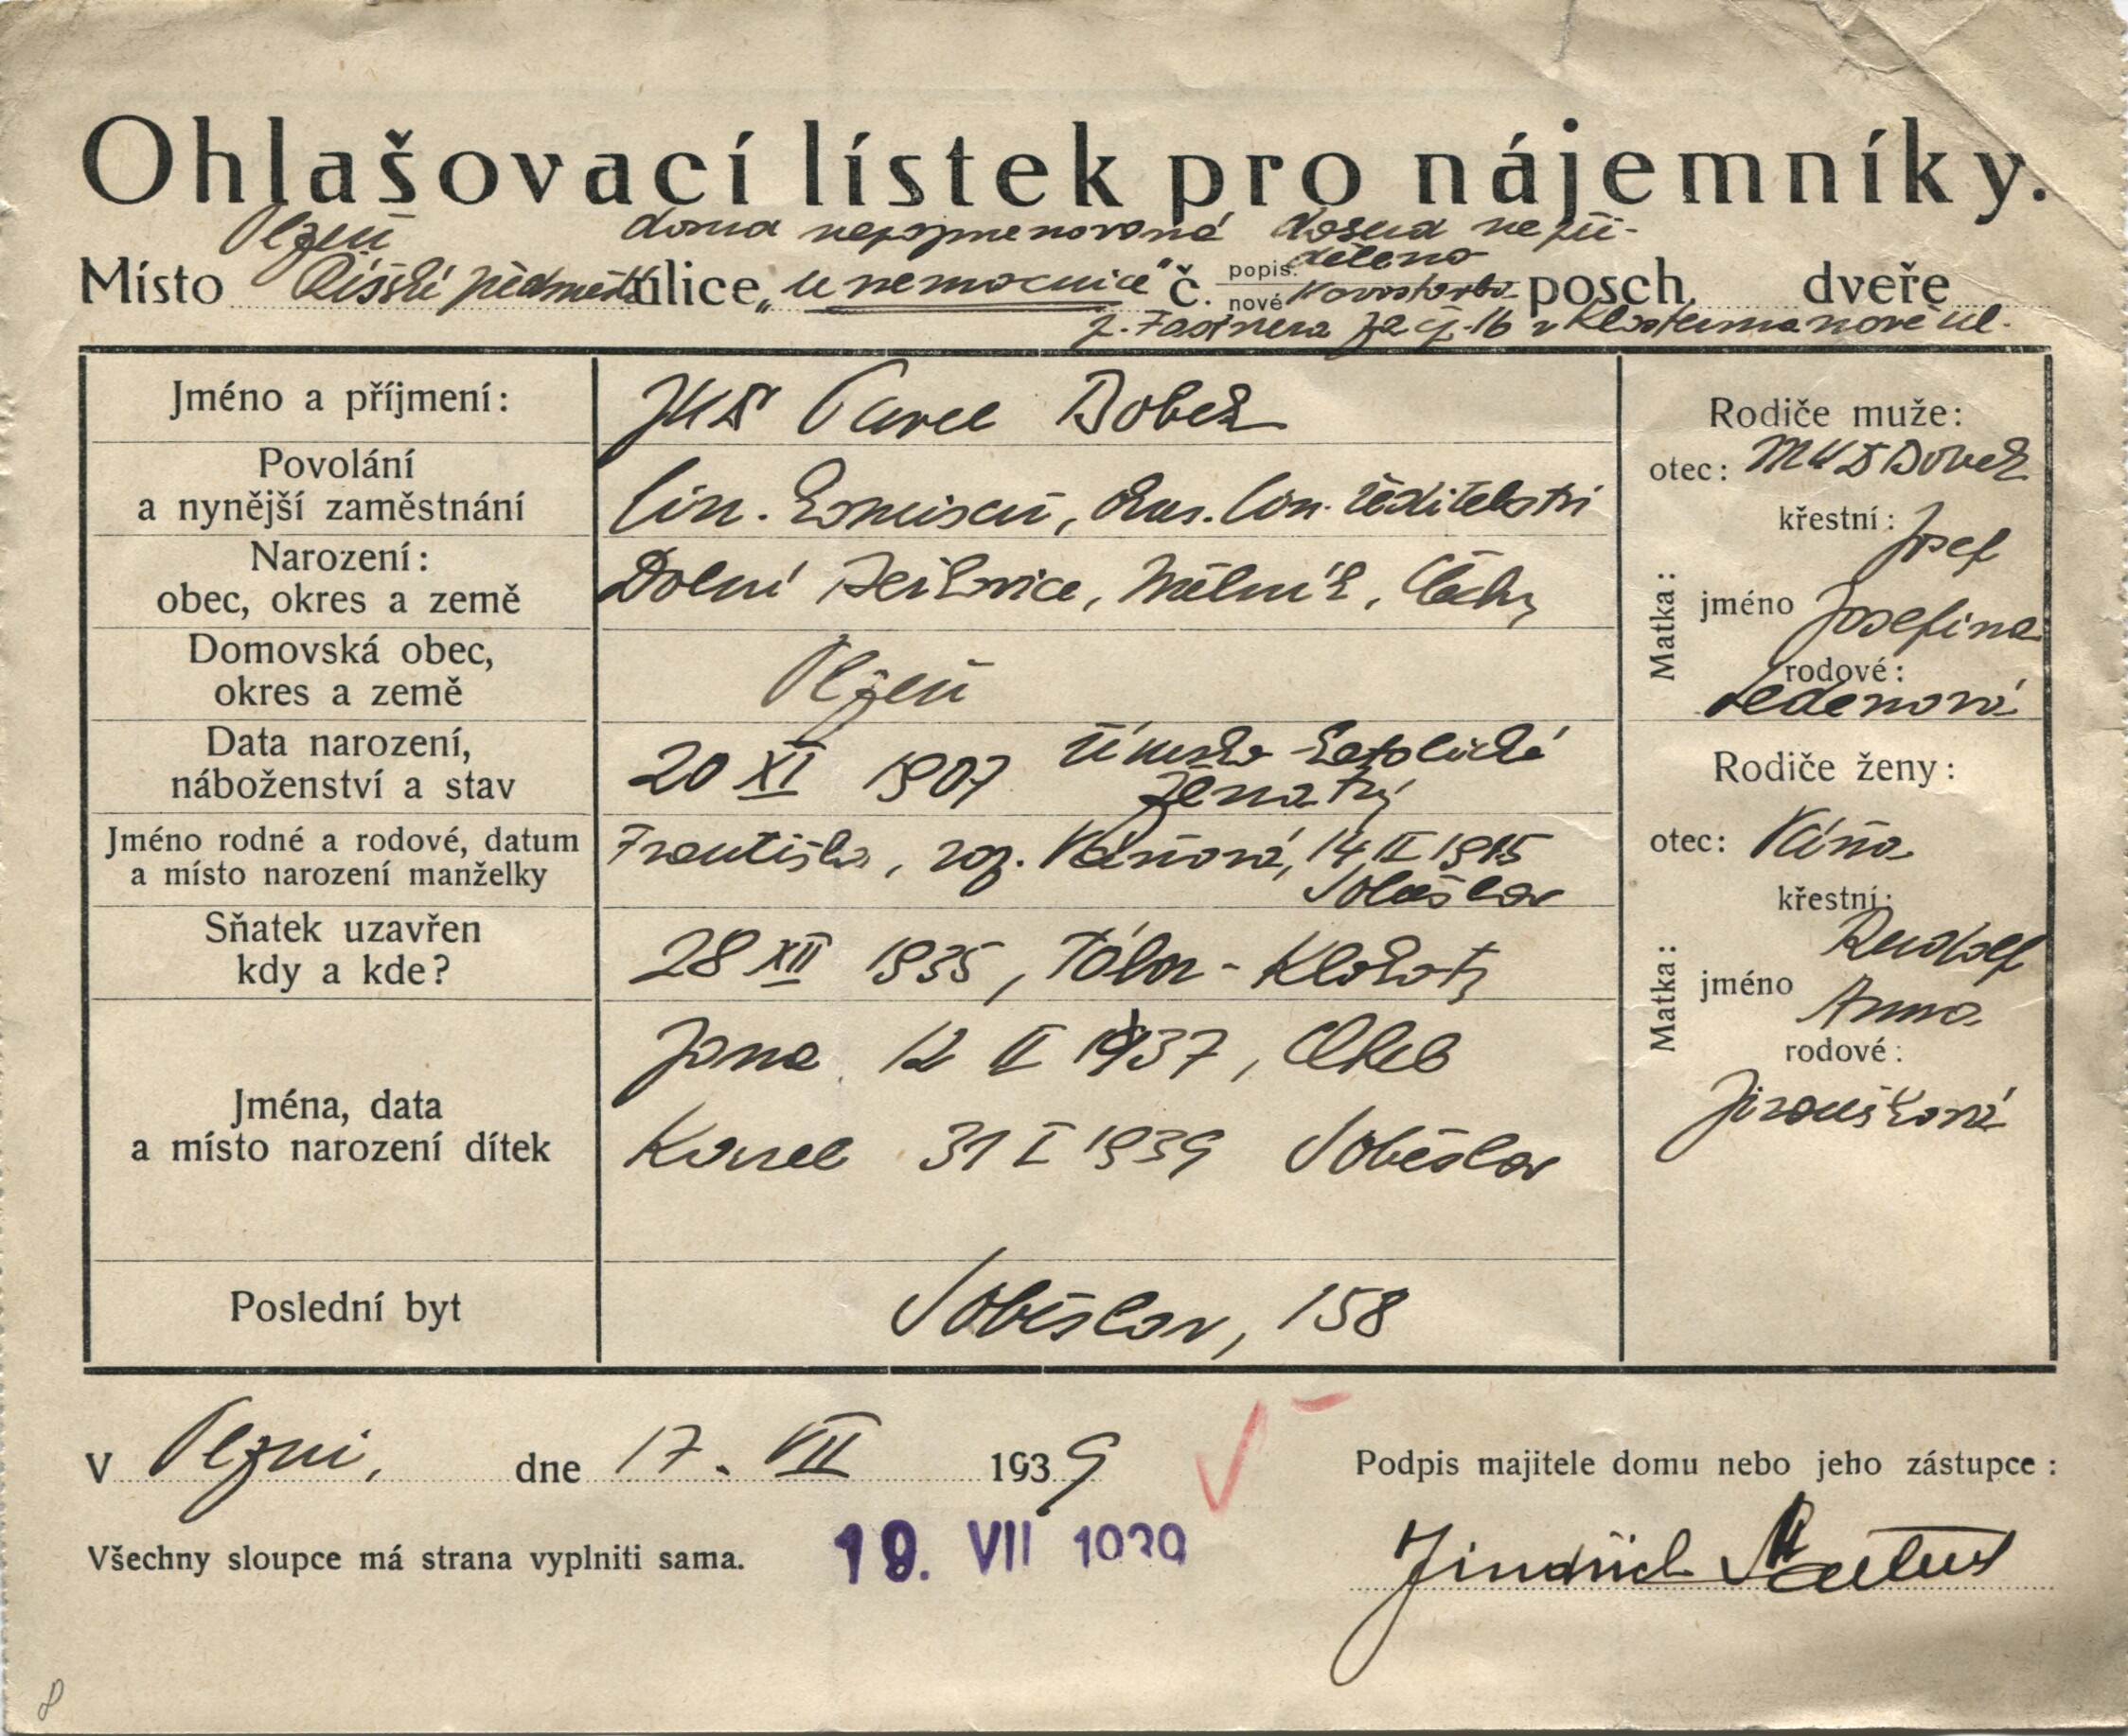 Ohlašovací lístek pro nájemníky.
Plzeň doma nepojmenované dosud nepři-
Místo Říšské předměstí ulice „u nemocnice" č. popis. děleno
nové novostavba posch. dveře
J. Fastnera za č. 16 v Klostermanově ul.
Jméno a příjmení: JUDr Pavel Bobek
Povolání
a nynější zaměstnání fin. komisař, okr. fin. ředitelství
Narození:
obec, okres a země Dolní Beřkovice, Mělník, Čechy
Domovská obec,
okres a země Plzeň
Data narození,
náboženství a stav 20 XI 1907 římsko-katolické
ženatý
Jméno rodné a rodové, datum
a místo narození manželky Františka, roz. Váňová, 14 II 1915
Soběslav
Sňatek uzavřen
kdy a kde? 28 XII 1935, Tábor - Klokoty
Jména, data
a místo narození dítek
Jana 12 II 1937, Cheb
Karel 31 I 1939 Soběslav
Poslední byt Soběslav, 158
Rodiče muže:
otec: MUDr Bobek
křestní:
Josef
Matka:
jméno Josefina
rodové:
Rodiče ženy:
otec: Váňa
křestní:
Rudolf
Matka:
jméno Anna
rodové:
Jiroušková
V Plzni, dne 17. VII 1939
Podpis majitele domu nebo jeho zástupce:
Všechny sloupce má strana vyplniti sama.
19. VII 1939
Jindřich
8